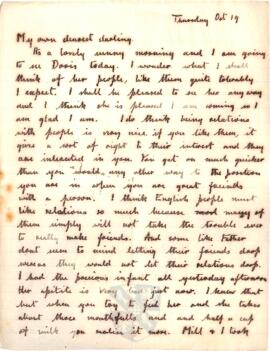 Thursday Oct 19
My own dearest darling.
Its a lovely sunny morning and I am going
to see Doris today. I wonder what I shall
think of her people, like them quite tolerably
I expect. I shall be pleased to see her anyway
and I think she is pleased I am coming so I
am glad I am. I do think being relations
with people is very nice, if you like them, it
gives a sort of right to their interest and they
are interested in you. You get on much quicker
than you would any other way to the position
you are in when you are great friends
with a person. I think English people must
like relations so much because most many of
them simply will not take the trouble ever
to really make friends. And some like Father
dont seem to mind letting their friends drop
wereas they would not let their relations drop.
I had the precious infant all yesterday afternoon
Her apetite is very bad just now. I knew that
but when you try to feed her and she takes
about three mouthfulls and and half a cup
of milk you realise it more. Mill & I took